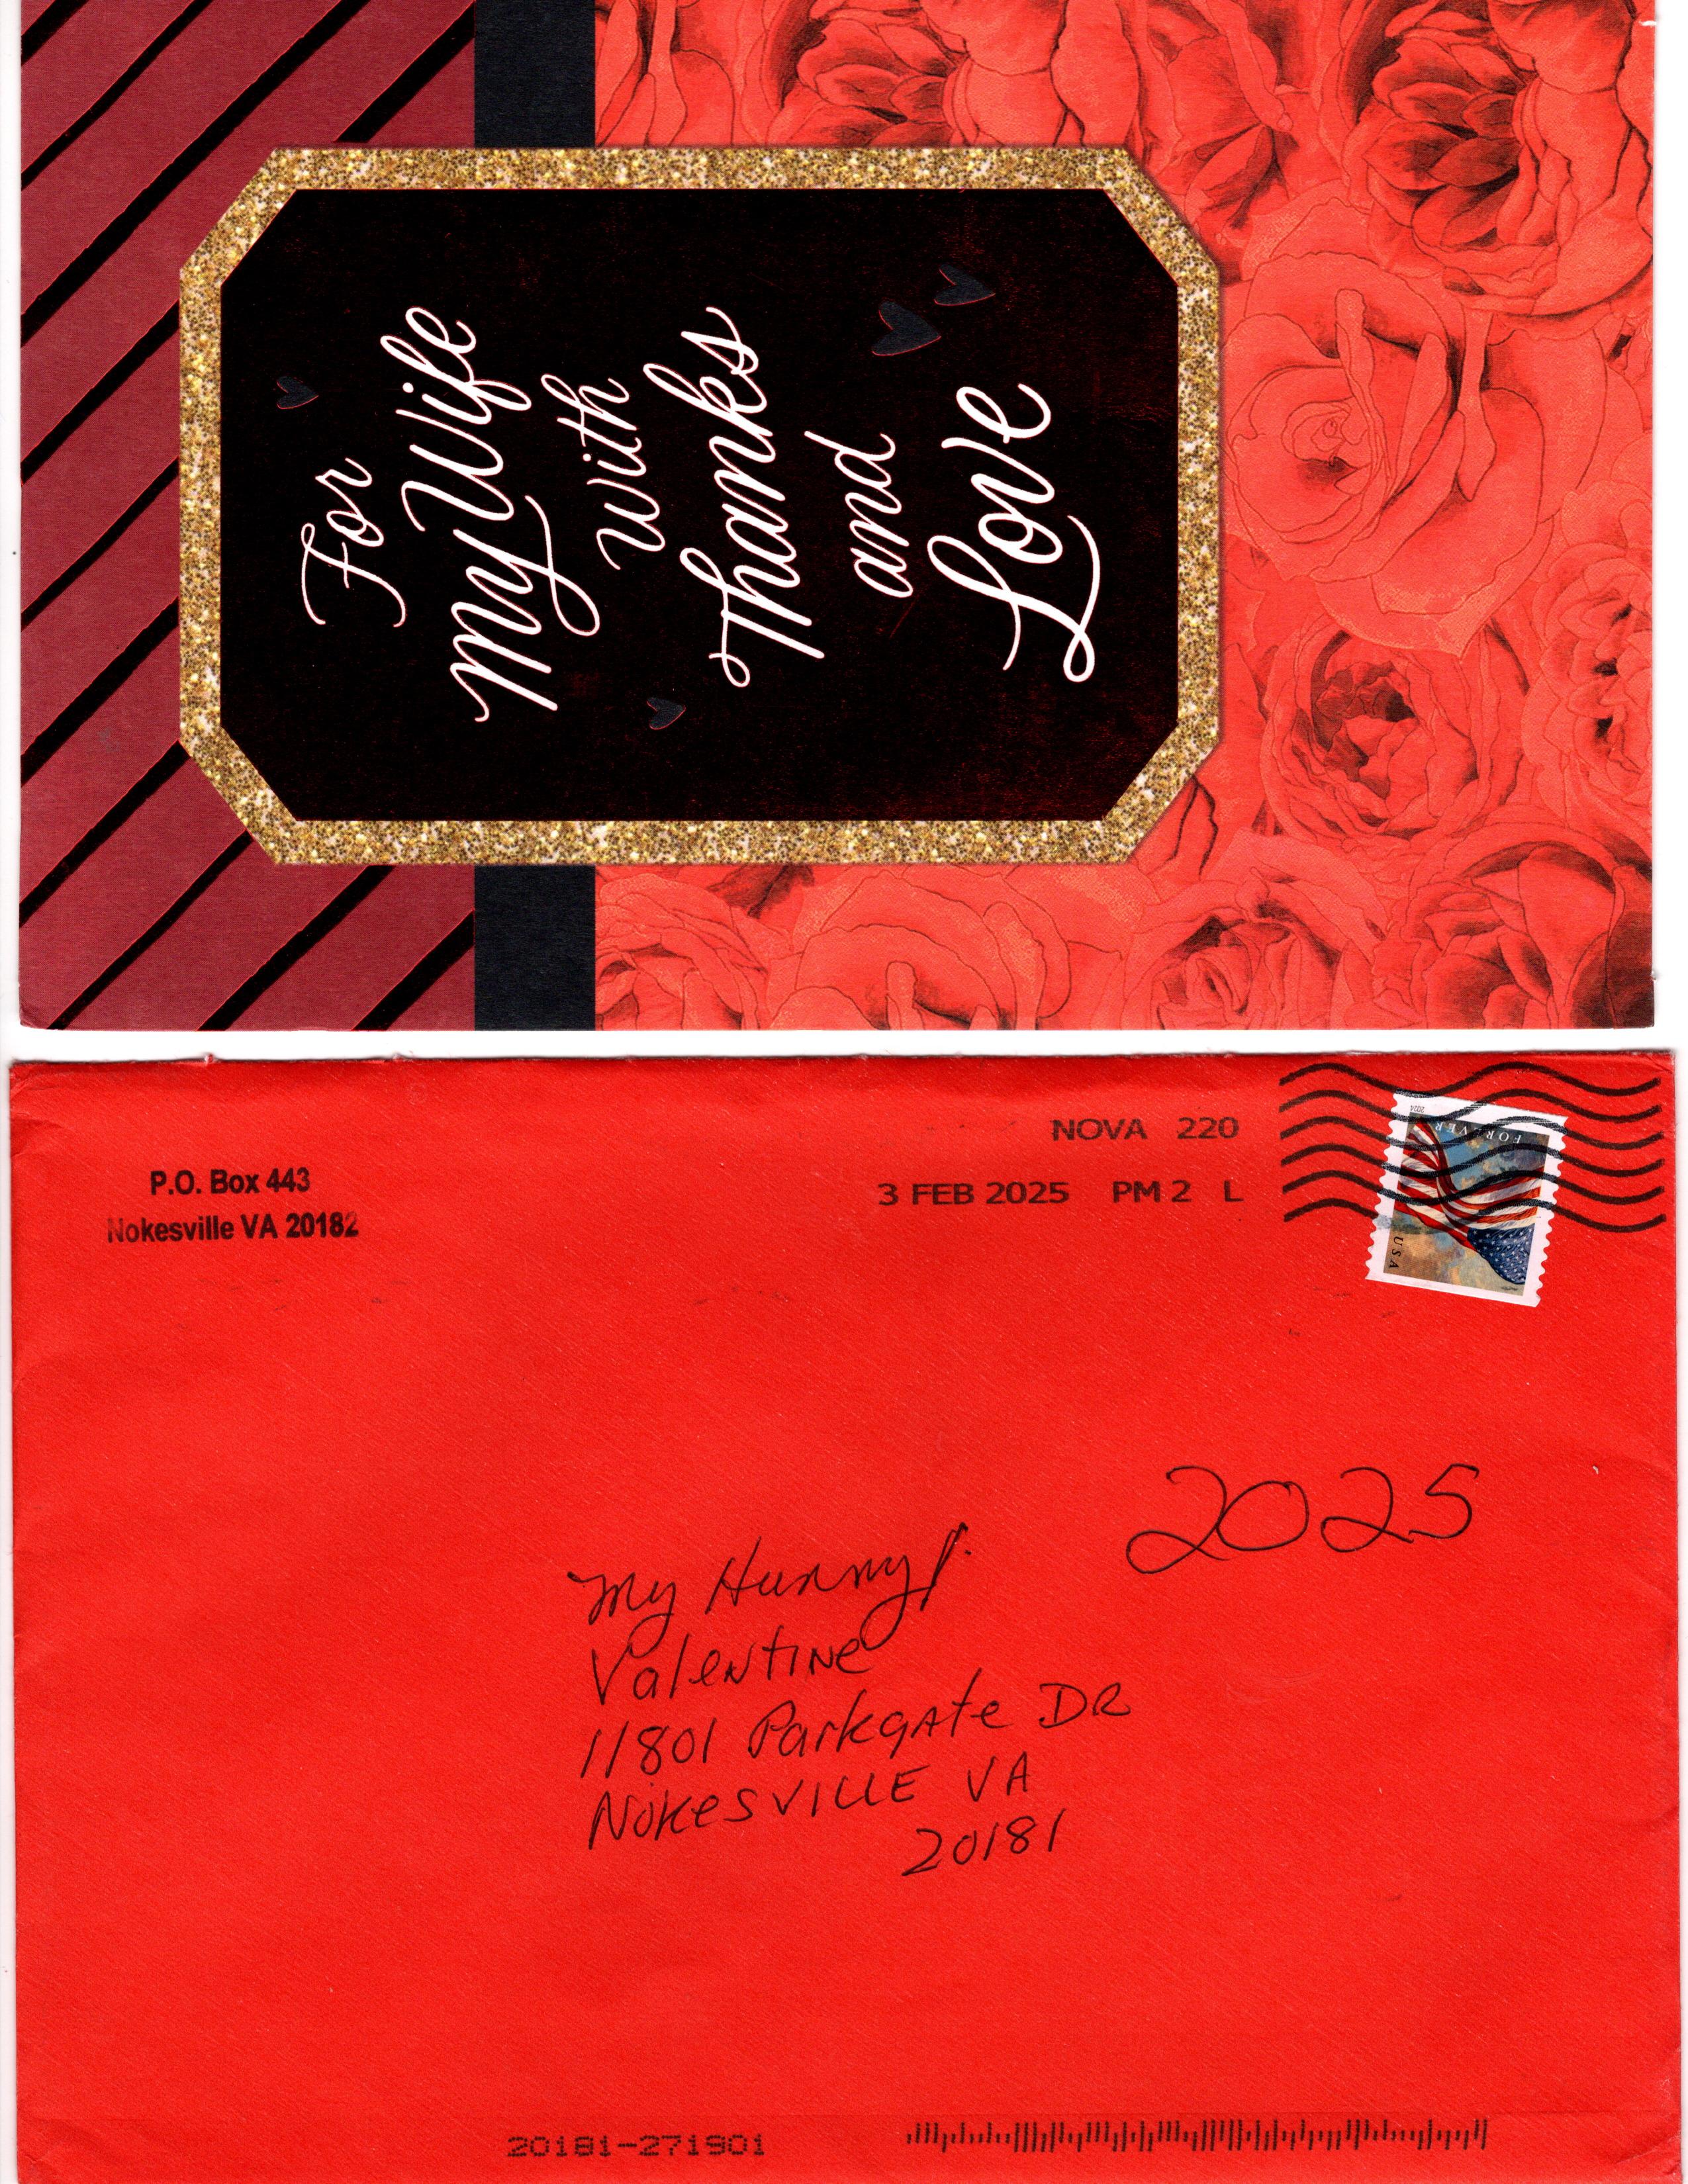 For
My Wife
with
Thanks
and
Love
P.O. Box 443
Nokesville VA 20182
NOVA 220
3 FEB 2025 PM 2 L
2024
FOREVER
USA
2025
My Hunny
Valentine
11801 Parkgate DR
Nokesville VA
20181
20181-271901